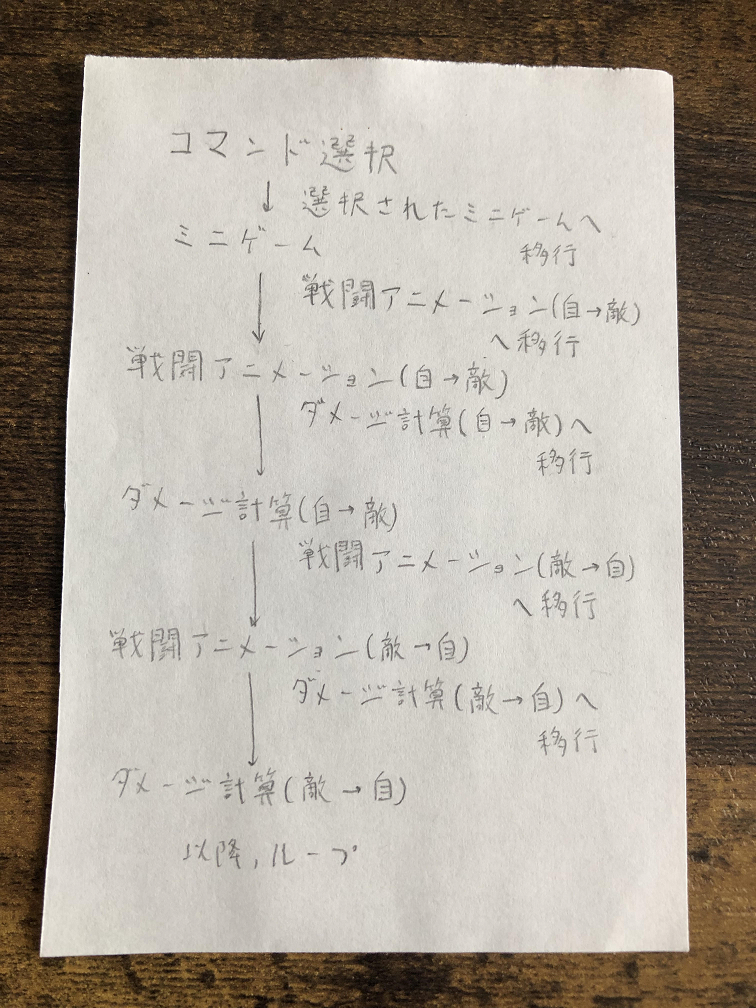 コマンド選択
↓ 選択されたミニゲームへ
移行
ミニゲーム
↓ 戦闘アニメーション(自→敵)
へ移行
戦闘アニメーション(自→敵)
↓ ダメージ計算(自→敵)へ
移行
ダメージ計算(自→敵)
↓ 戦闘アニメーション(敵→自)
へ移行
戦闘アニメーション(敵→自)
↓ ダメージ計算(敵→自)へ
移行
ダメージ計算(敵→自)
以降,ループ